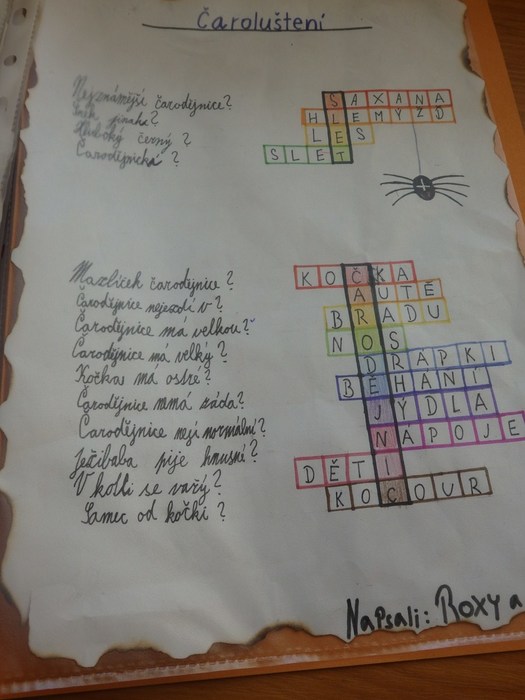 Čaroluštení
Nejznámější čarodějnice? SAXANA
Šnek jinak? HLEMÝŽĎ
Hluboký černý? LES
Čarodějnická? SLET
Mazlíček čarodějnice? KOČKA
Čarodějnice nejezdí v? AUTĚ
Čarodějnice má velkou? BRADU
Čarodějnice má velký? NOS
Kočka má ostré? DRÁPKI
Čarodějnice nemá ráda? BĚHÁNÍ
Čarodějnice nejí normální? JÝDLA
Ježibaba pije hnusné? NÁPOJE
V kotli se vařý? DĚTI
Samec od kočki? KOCOUR
Napsali: Roxy a